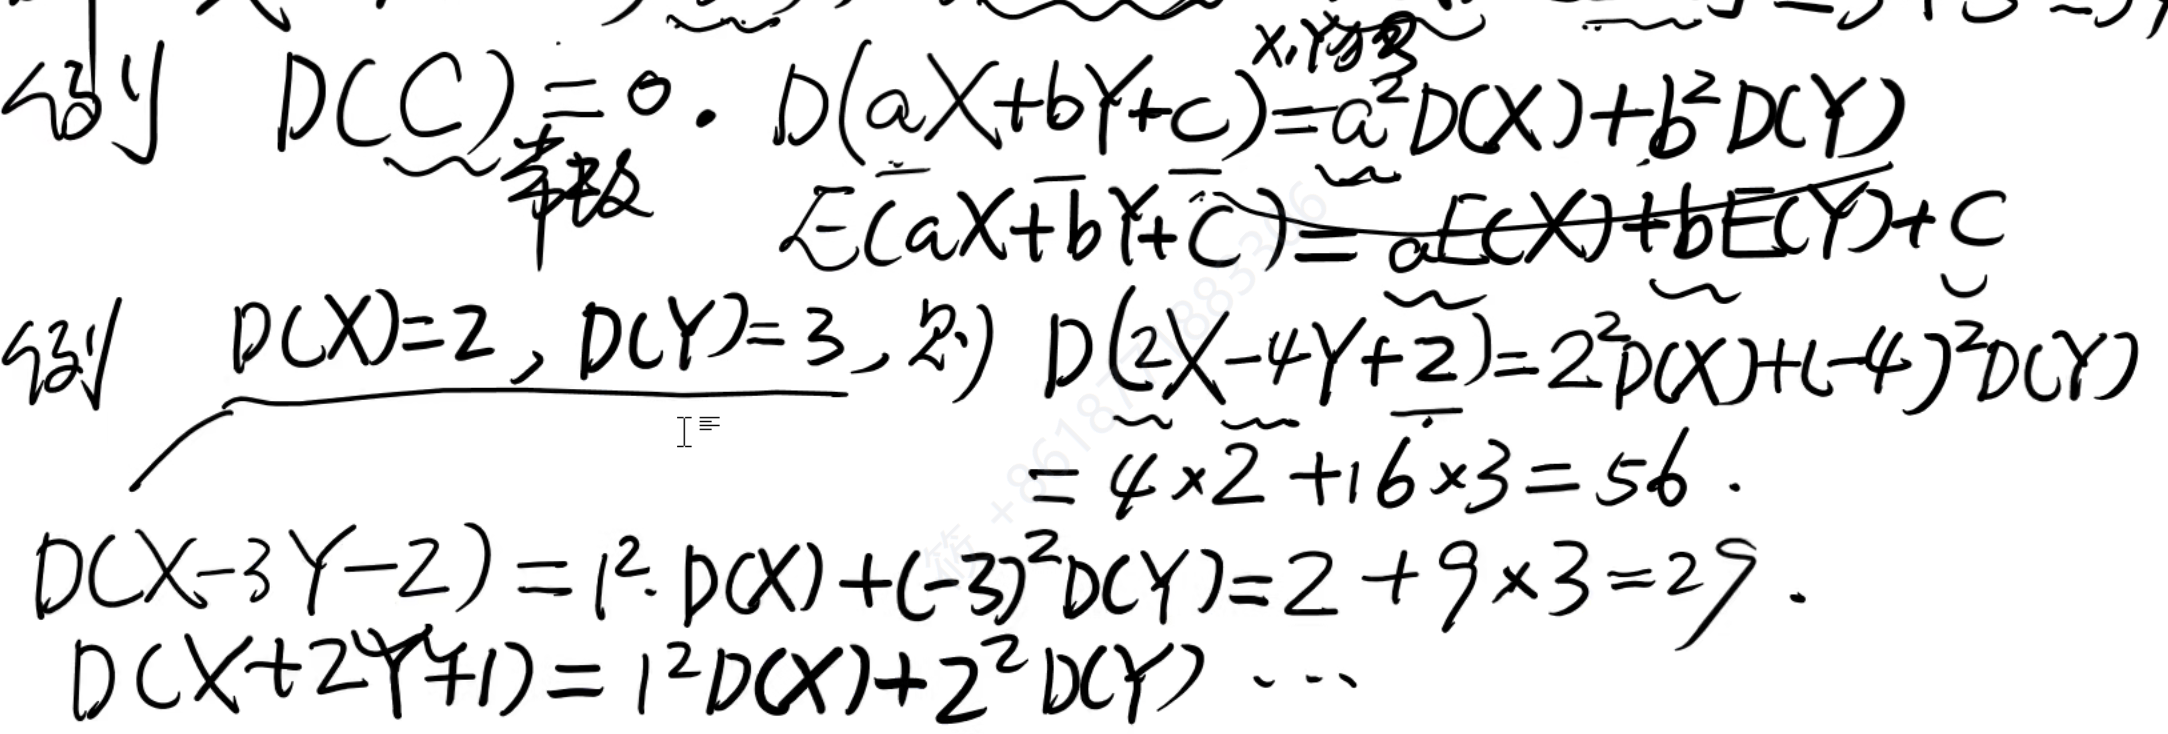 例 D(C)=0. D(aX+bY+c)=a²D(X)+b²D(Y)
常数
X,Y独立
E(aX+bY+c)=aE(X)+bE(Y)+C
例 D(X)=2, D(Y)=3, 则 D(2X-4Y+2)=2²D(X)+(-4)²D(Y)
=4×2+16×3=56.
D(X-3Y-2)=1²·D(X)+(-3)²D(Y)=2+9×3=29.
D(X+2Y+1)=1²D(X)+2²D(Y)...